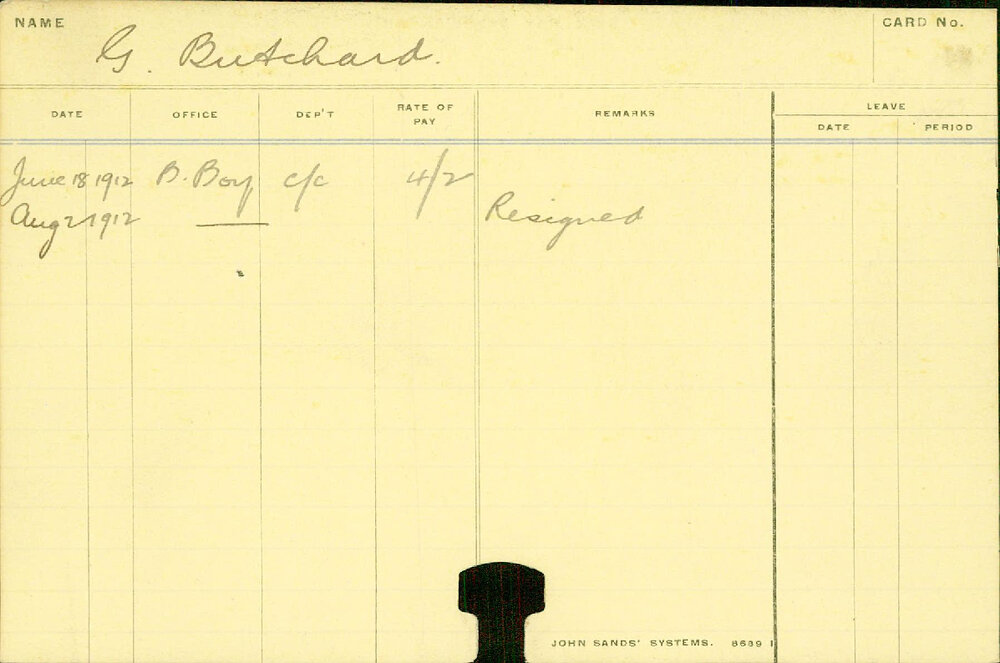 NAME
CARD No.
G. Butchard.
DATE
OFFICE
DEP'T
RATE OF PAY
REMARKS
LEAVE
DATE
PERIOD
June 18 1912 B. Boy c/c 4/2
Aug 2 1912 Resigned
JOHN SANDS' SYSTEMS. 8689 1